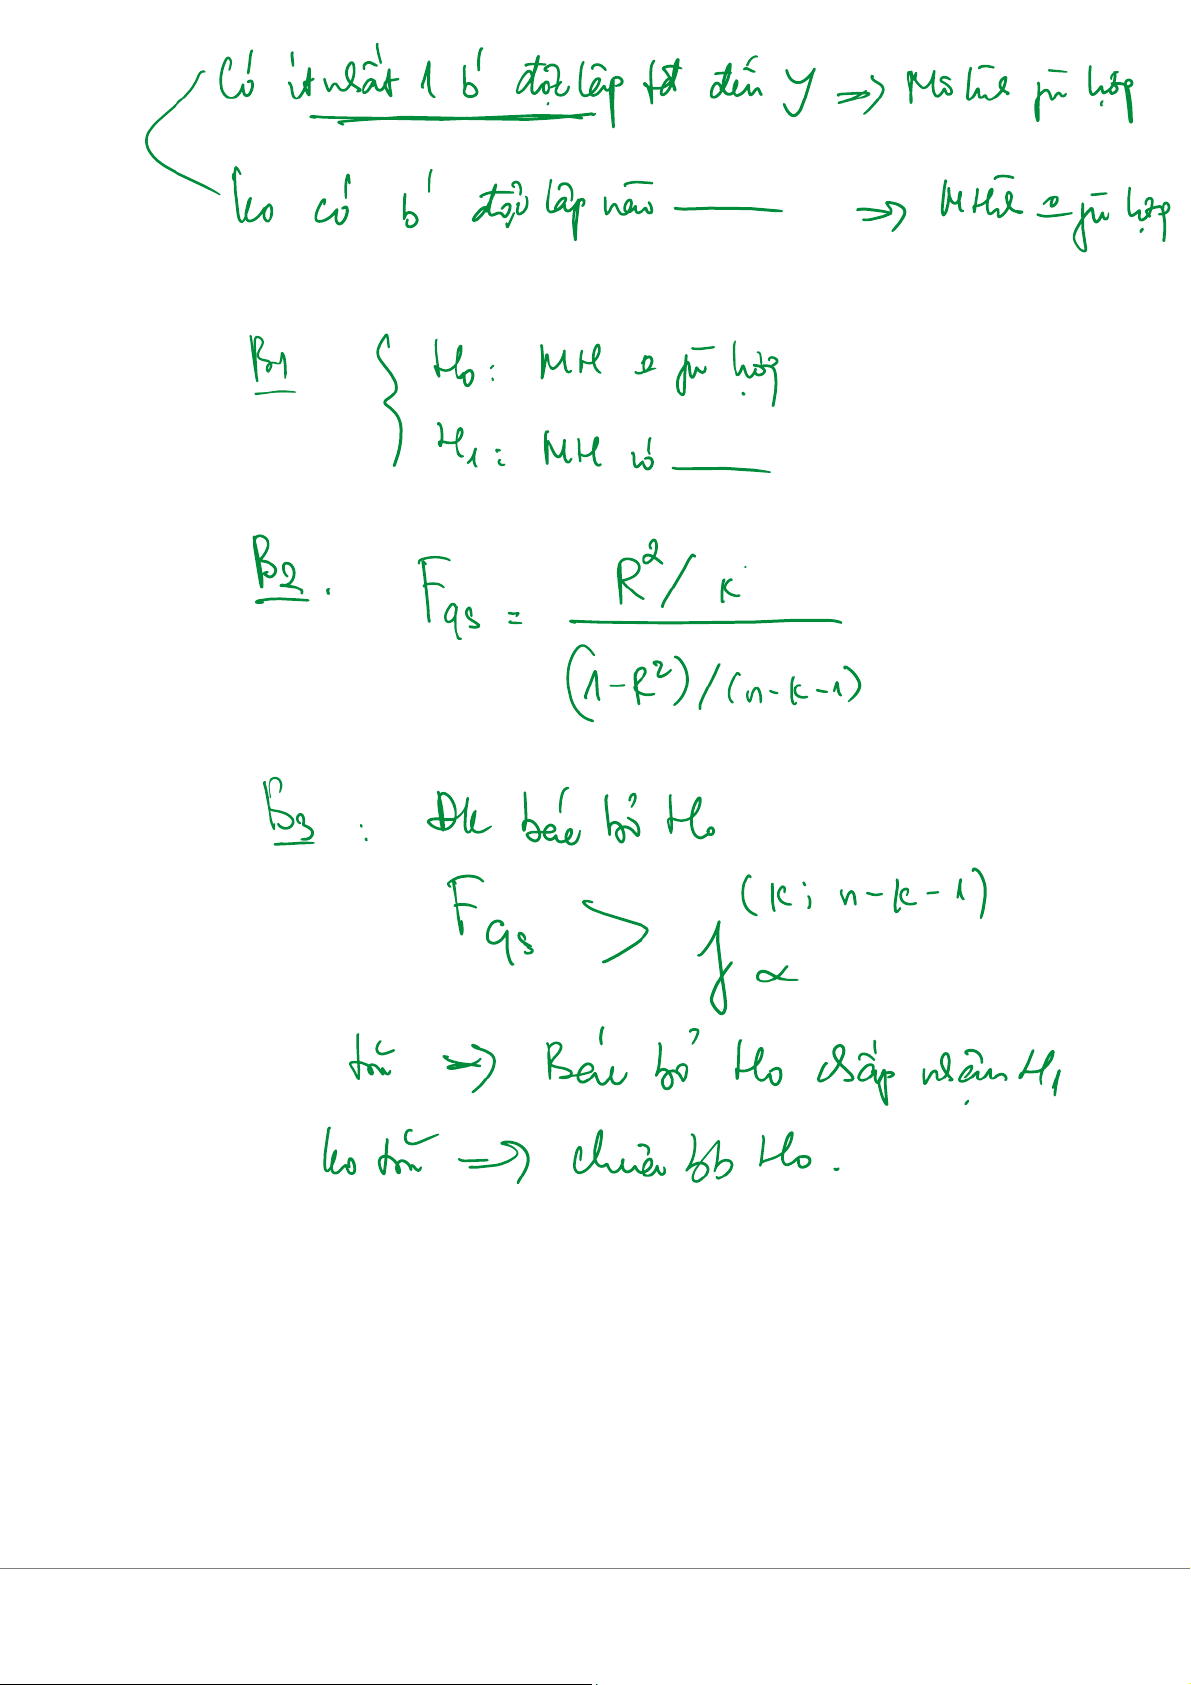 Có ít nhất 1 b' độc lập tđ đến Y => Mô hình phù hợp
ko có b' độc lập nào —— => M Hình phù hợp
B1 { H0: MH phù hợp
H1: MH có ——
B2. Fqs = R²/k / (1-R²)/(n-k-1)
B3: ĐK bác bỏ H0
Fqs > f α (k; n-k-1)
tm => Bác bỏ H0 chấp nhận H1
ko tm => chưa bb H0.